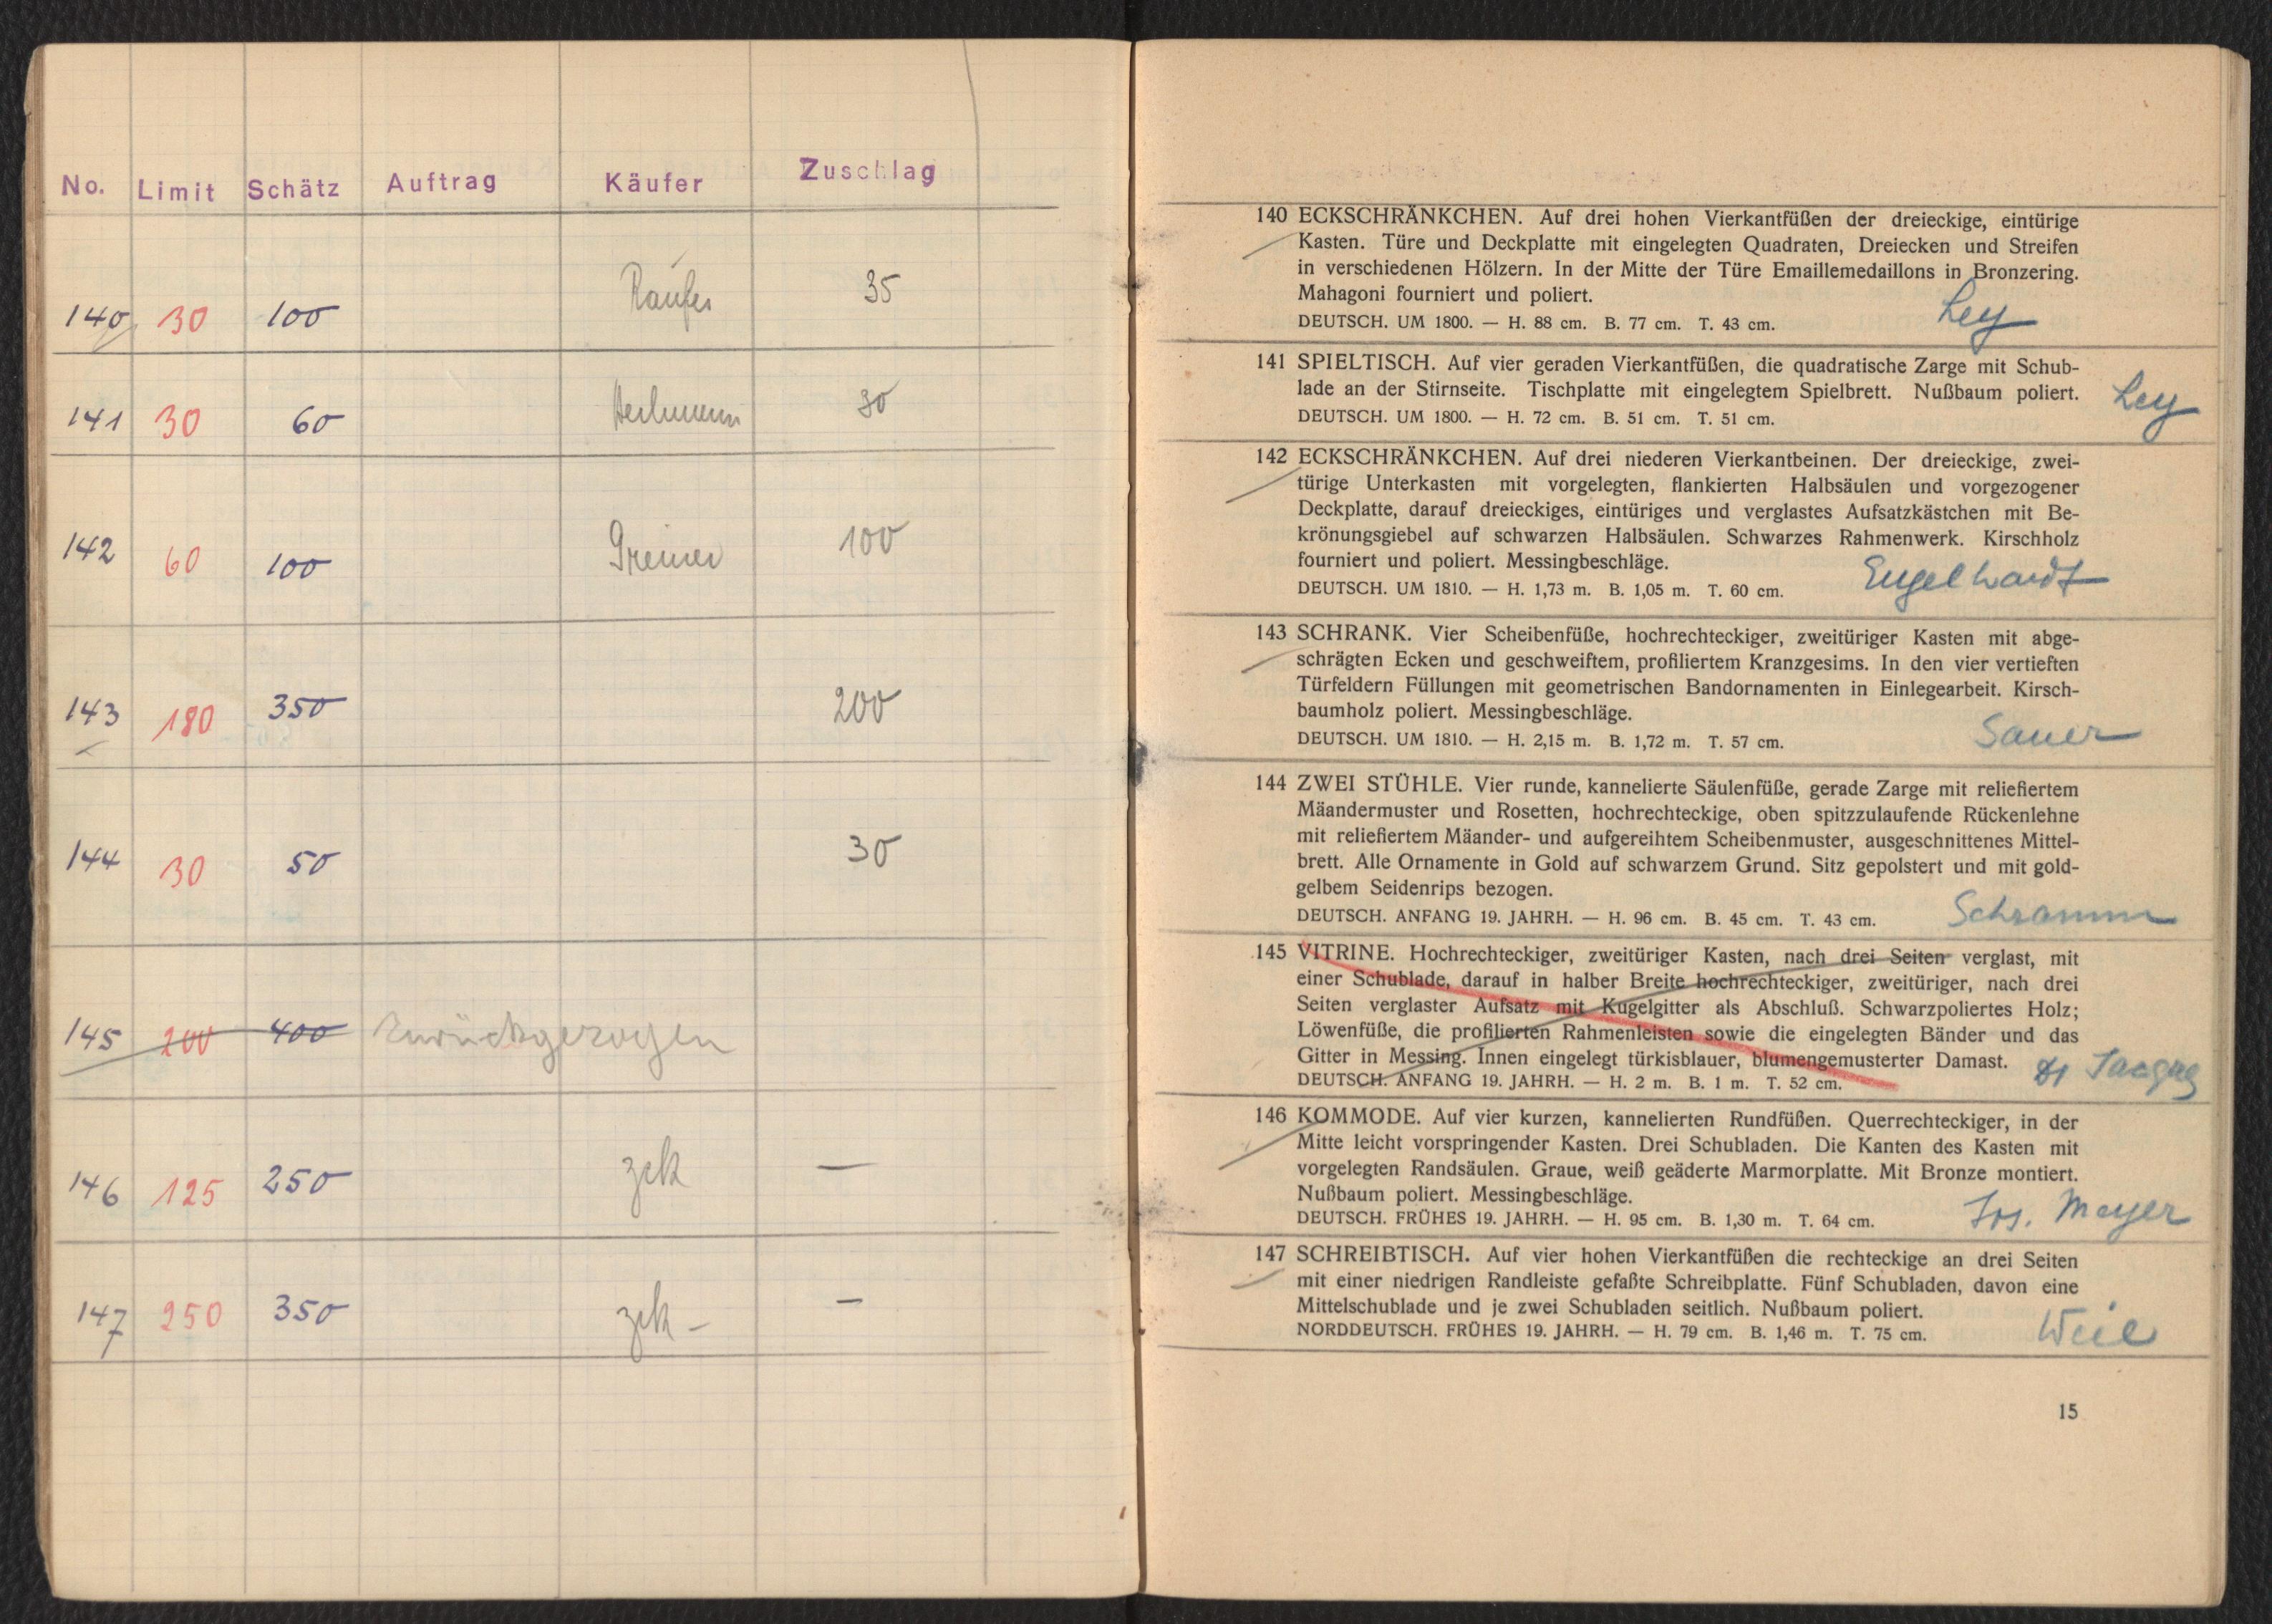 No. Limit Schätz Auftrag Käufer Zuschlag
140 30 100 35
141 30 60 Heilmann 30
142 60 100 Greiner 100
143 180 350 200
144 30 50 30
145 200 400 Zurückgezogen
146 125 250 zck —
147 250 350 zck – –
140 ECKSCHRÄNKCHEN. Auf drei hohen Vierkantfüßen der dreieckige, eintürige
Kasten. Türe und Deckplatte mit eingelegten Quadraten, Dreiecken und Streifen
in verschiedenen Hölzern. In der Mitte der Türe Emaillemedaillons in Bronzering.
Mahagoni fourniert und poliert.
DEUTSCH. UM 1800. — H. 88 cm. B. 77 cm. T. 43 cm.
Ley
141 SPIELTISCH. Auf vier geraden Vierkantfüßen, die quadratische Zarge mit Schub-
lade an der Stirnseite. Tischplatte mit eingelegtem Spielbrett. Nußbaum poliert.
DEUTSCH. UM 1800. — H. 72 cm. B. 51 cm. T. 51 cm.
Ley
142 ECKSCHRÄNKCHEN. Auf drei niederen Vierkantbeinen. Der dreieckige, zwei-
türige Unterkasten mit vorgelegten, flankierten Halbsäulen und vorgezogener
Deckplatte, darauf dreieckiges, eintüriges und verglastes Aufsatzkästchen mit Be-
krönungsgiebel auf schwarzen Halbsäulen. Schwarzes Rahmenwerk. Kirschholz
fourniert und poliert. Messingbeschläge.
DEUTSCH. UM 1810. — H. 1,73 m. B. 1,05 m. T. 60 cm.
Engelhardt
143 SCHRANK. Vier Scheibenfüße, hochrechteckiger, zweitüriger Kasten mit abge-
schrägten Ecken und geschweiftem, profiliertem Kranzgesims. In den vier vertieften
Türfeldern Füllungen mit geometrischen Bandornamenten in Einlegearbeit. Kirsch-
baumholz poliert. Messingbeschläge.
DEUTSCH. UM 1810. — H. 2,15 m. B. 1,72 m. T. 57 cm.
Sauer
144 ZWEI STÜHLE. Vier runde, kannelierte Säulenfüße, gerade Zarge mit reliefiertem
Mäandermuster und Rosetten, hochrechteckige, oben spitzzulaufende Rückenlehne
mit reliefiertem Mäander- und aufgereihtem Scheibenmuster, ausgeschnittenes Mittel-
brett. Alle Ornamente in Gold auf schwarzem Grund. Sitz gepolstert und mit gold-
gelbem Seidenrips bezogen.
DEUTSCH. ANFANG 19. JAHRH. — H. 96 cm. B. 45 cm. T. 43 cm.
Schramm
145 VITRINE. Hochrechteckiger, zweitüriger Kasten, nach drei Seiten verglast, mit
einer Schublade, darauf in halber Breite hochrechteckiger, zweitüriger, nach drei
Seiten verglaster Aufsatz mit Kugelgitter als Abschluß. Schwarzpoliertes Holz;
Löwenfüße, die profilierten Rahmenleisten sowie die eingelegten Bänder und das
Gitter in Messing. Innen eingelegt türkisblauer, blumengemusterter Damast.
DEUTSCH. ANFANG 19. JAHRH. — H. 2 m. B. 1 m. T. 52 cm.
146 KOMMODE. Auf vier kurzen, kannelierten Rundfüßen. Querrechteckiger, in der
Mitte leicht vorspringender Kasten. Drei Schubladen. Die Kanten des Kasten mit
vorgelegten Randsäulen. Graue, weiß geäderte Marmorplatte. Mit Bronze montiert.
Nußbaum poliert. Messingbeschläge.
DEUTSCH. FRÜHES 19. JAHRH. — H. 95 cm. B. 1,30 m. T. 64 cm.
Jos. Meyer
147 SCHREIBTISCH. Auf vier hohen Vierkantfüßen die rechteckige an drei Seiten
mit einer niedrigen Randleiste gefaßte Schreibplatte. Fünf Schubladen, davon eine
Mittelschublade und je zwei Schubladen seitlich. Nußbaum poliert.
NORDDEUTSCH. FRÜHES 19. JAHRH. — H. 79 cm. B. 1,46 m. T. 75 cm.
Weil
15